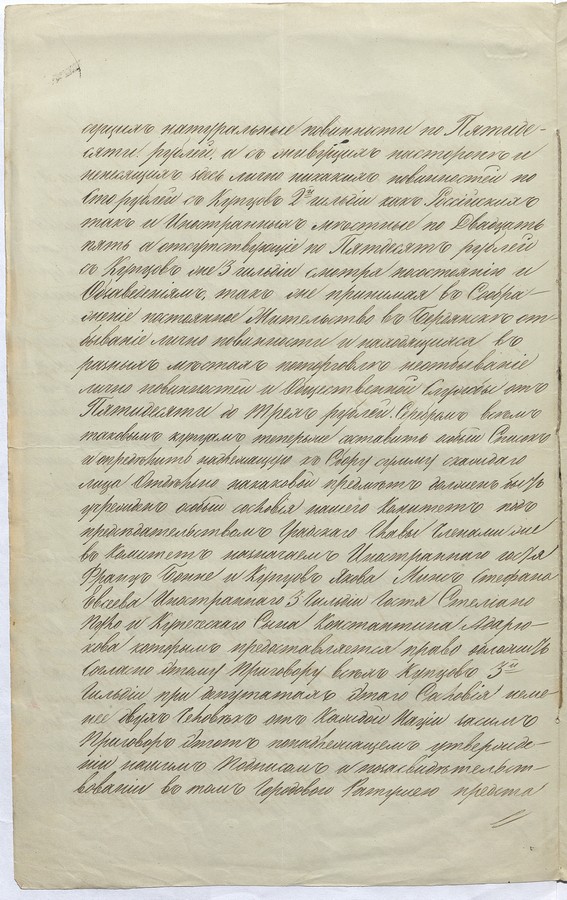 сущихъ натуральные повинности по Пятиде-
сяти рублей, а съ живущихъ на сторонѣ и
неносящихъ здесь лично никакихъ повинностей по
Сто рублей съ Купцовъ 2й гильдіи какъ Россійскихъ
такъ и Иностранныхъ мѣстные по Двадцать
пять а отсутствующіе по Пятдесятъ рублей
съ Купцовъ же 3 гильдіи смотря по состоянію и
Обзаведеніямъ, такъ же принимая въ Сообра-
женіе постоянное Жительство въ Бердянскѣ от-
бываніе лично повинности и находящихся въ
разныхъ мѣстахъ по торговлѣ неотбываніе
лично повинностей и Общественной Службы отъ
Пятидесяти до Трехъ рублей Серебромъ всѣмъ
таковымъ купцамъ теперь же составить особый Списокъ
и определить надлежащую къ Сбору сумму съ каждаго
лица Отдѣльно на каковой предмѣтъ долженъ быть
учрежденъ особый сословія нашего Комитетъ подъ
председательствомъ Градского Главы Членами же
въ Комитетъ назначаемъ Иностраннаго гостя
Францъ Бонне и Купцовъ Якова Минъ Стефана
Евсеева Иностраннаго 3 Гильдіи Гостя Стеліано
и Купеческаго Сына Константина
которымъ предоставляется право обложить
Согласно этому Приговору всѣхъ Купцовъ 3й
Гильдіи при депутатахъ этаго Сословія неме-
нее двухъ Человѣкъ отъ Каждой Націи
Приговоръ этотъ по надлежащемъ утвержде-
ніи нашимъ Подписомъ и позасвидѣтельст-
вованіи въ томъ Городового Ратушею предста